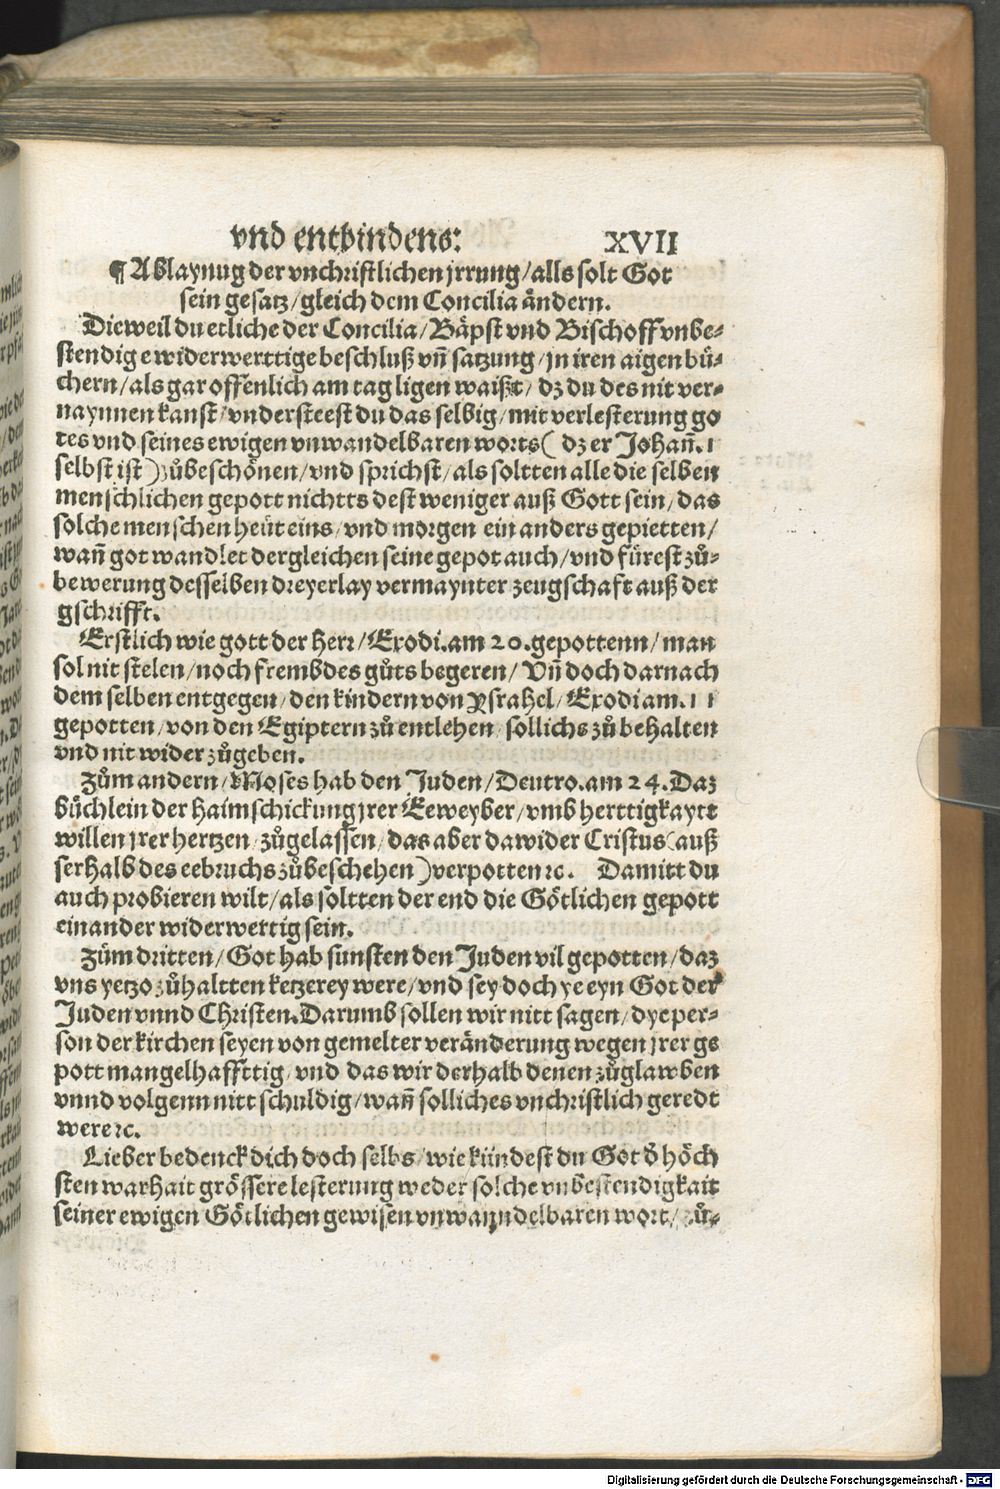 vnd entbindens: XVII
¶ Ablaynug der vnchristlichen jrrung/alls solt Got
sein gesatz/gleich dem Concilia ändern.
Dieweil du etliche der Concilia/Bäpst vnd Bischoff vnbe⸗
stendige widerwerttige beschluß vñ satzung/jn iren aigen bü⸗
chern/als gar offenlich am tag ligen waißt/dz du des nit ver⸗
naynnen kanst/vndersteest du das selbig/mit verlesterung go
tes vnd seines ewigen vnwandelbaren worts(dz er Johañ.1
selbst ist)zůbeschönen/vnd sprichst/als soltten alle die selben
menschlichen gepott nichtts dest weniger auß Gott sein/das
solche menschen heüt eins/vnd morgen ein anders gepietten/
wañ got wandlet dergleichen seine gepot auch/vnd fürest zů⸗
bewerung desselben dreyerlay vermaynter zeugschaft auß der
gschrifft.
Erstlich wie gott der herr/Exodi.am 20.gepottenn/man
sol nit stelen/noch frembdes gůts begeren/Vñ doch darnach
dem selben entgegen/den kindern von Ysrahel/Exodi am.11
gepotten/von den Egiptern zů entlehen/sollichs zů behalten
vnd nit wider zůgeben.
Zům andern/Moses hab den Juden/Deutro.am 24.Daz
büchlein der haimschickung jrer Eeweyber/vmb herttigkaytt
willen jrer hertzen/zůgelassen/das aber dawider Cristus(auß
serhalb des eebruchs zůbeschehen)verpotten ⁊c. Damitt du
auch probieren wilt/als soltten der end die Götlichen gepott
einander widerwertig sein.
Zům dritten/Got hab sunsten den Juden vil gepotten/daz
vns yetzo zůhaltten ketzerey were/vnd sey doch ye eyn Got der
Juden vnnd Christen.Darumb sollen wir nitt sagen/dye per⸗
son der kirchen seyen von gemelter veränderung wegen jrer ge
pott mangelhaffttig/vnd das wir derhalb denen zůglawben
vnnd volgenn nitt schuldig/wañ solliches vnchristlich geredt
were ⁊c.
Lieber bedenck dich doch selbs/wie kündest du Got d̄ höch
sten warhait grössere lesterung weder solche vnbestendigkait
seiner ewigen Götlichen gewisen vnwanndelbaren wort/zů⸗
Digitalisierung gefördert durch die Deutsche Forschungsgemeinschaft - DFG